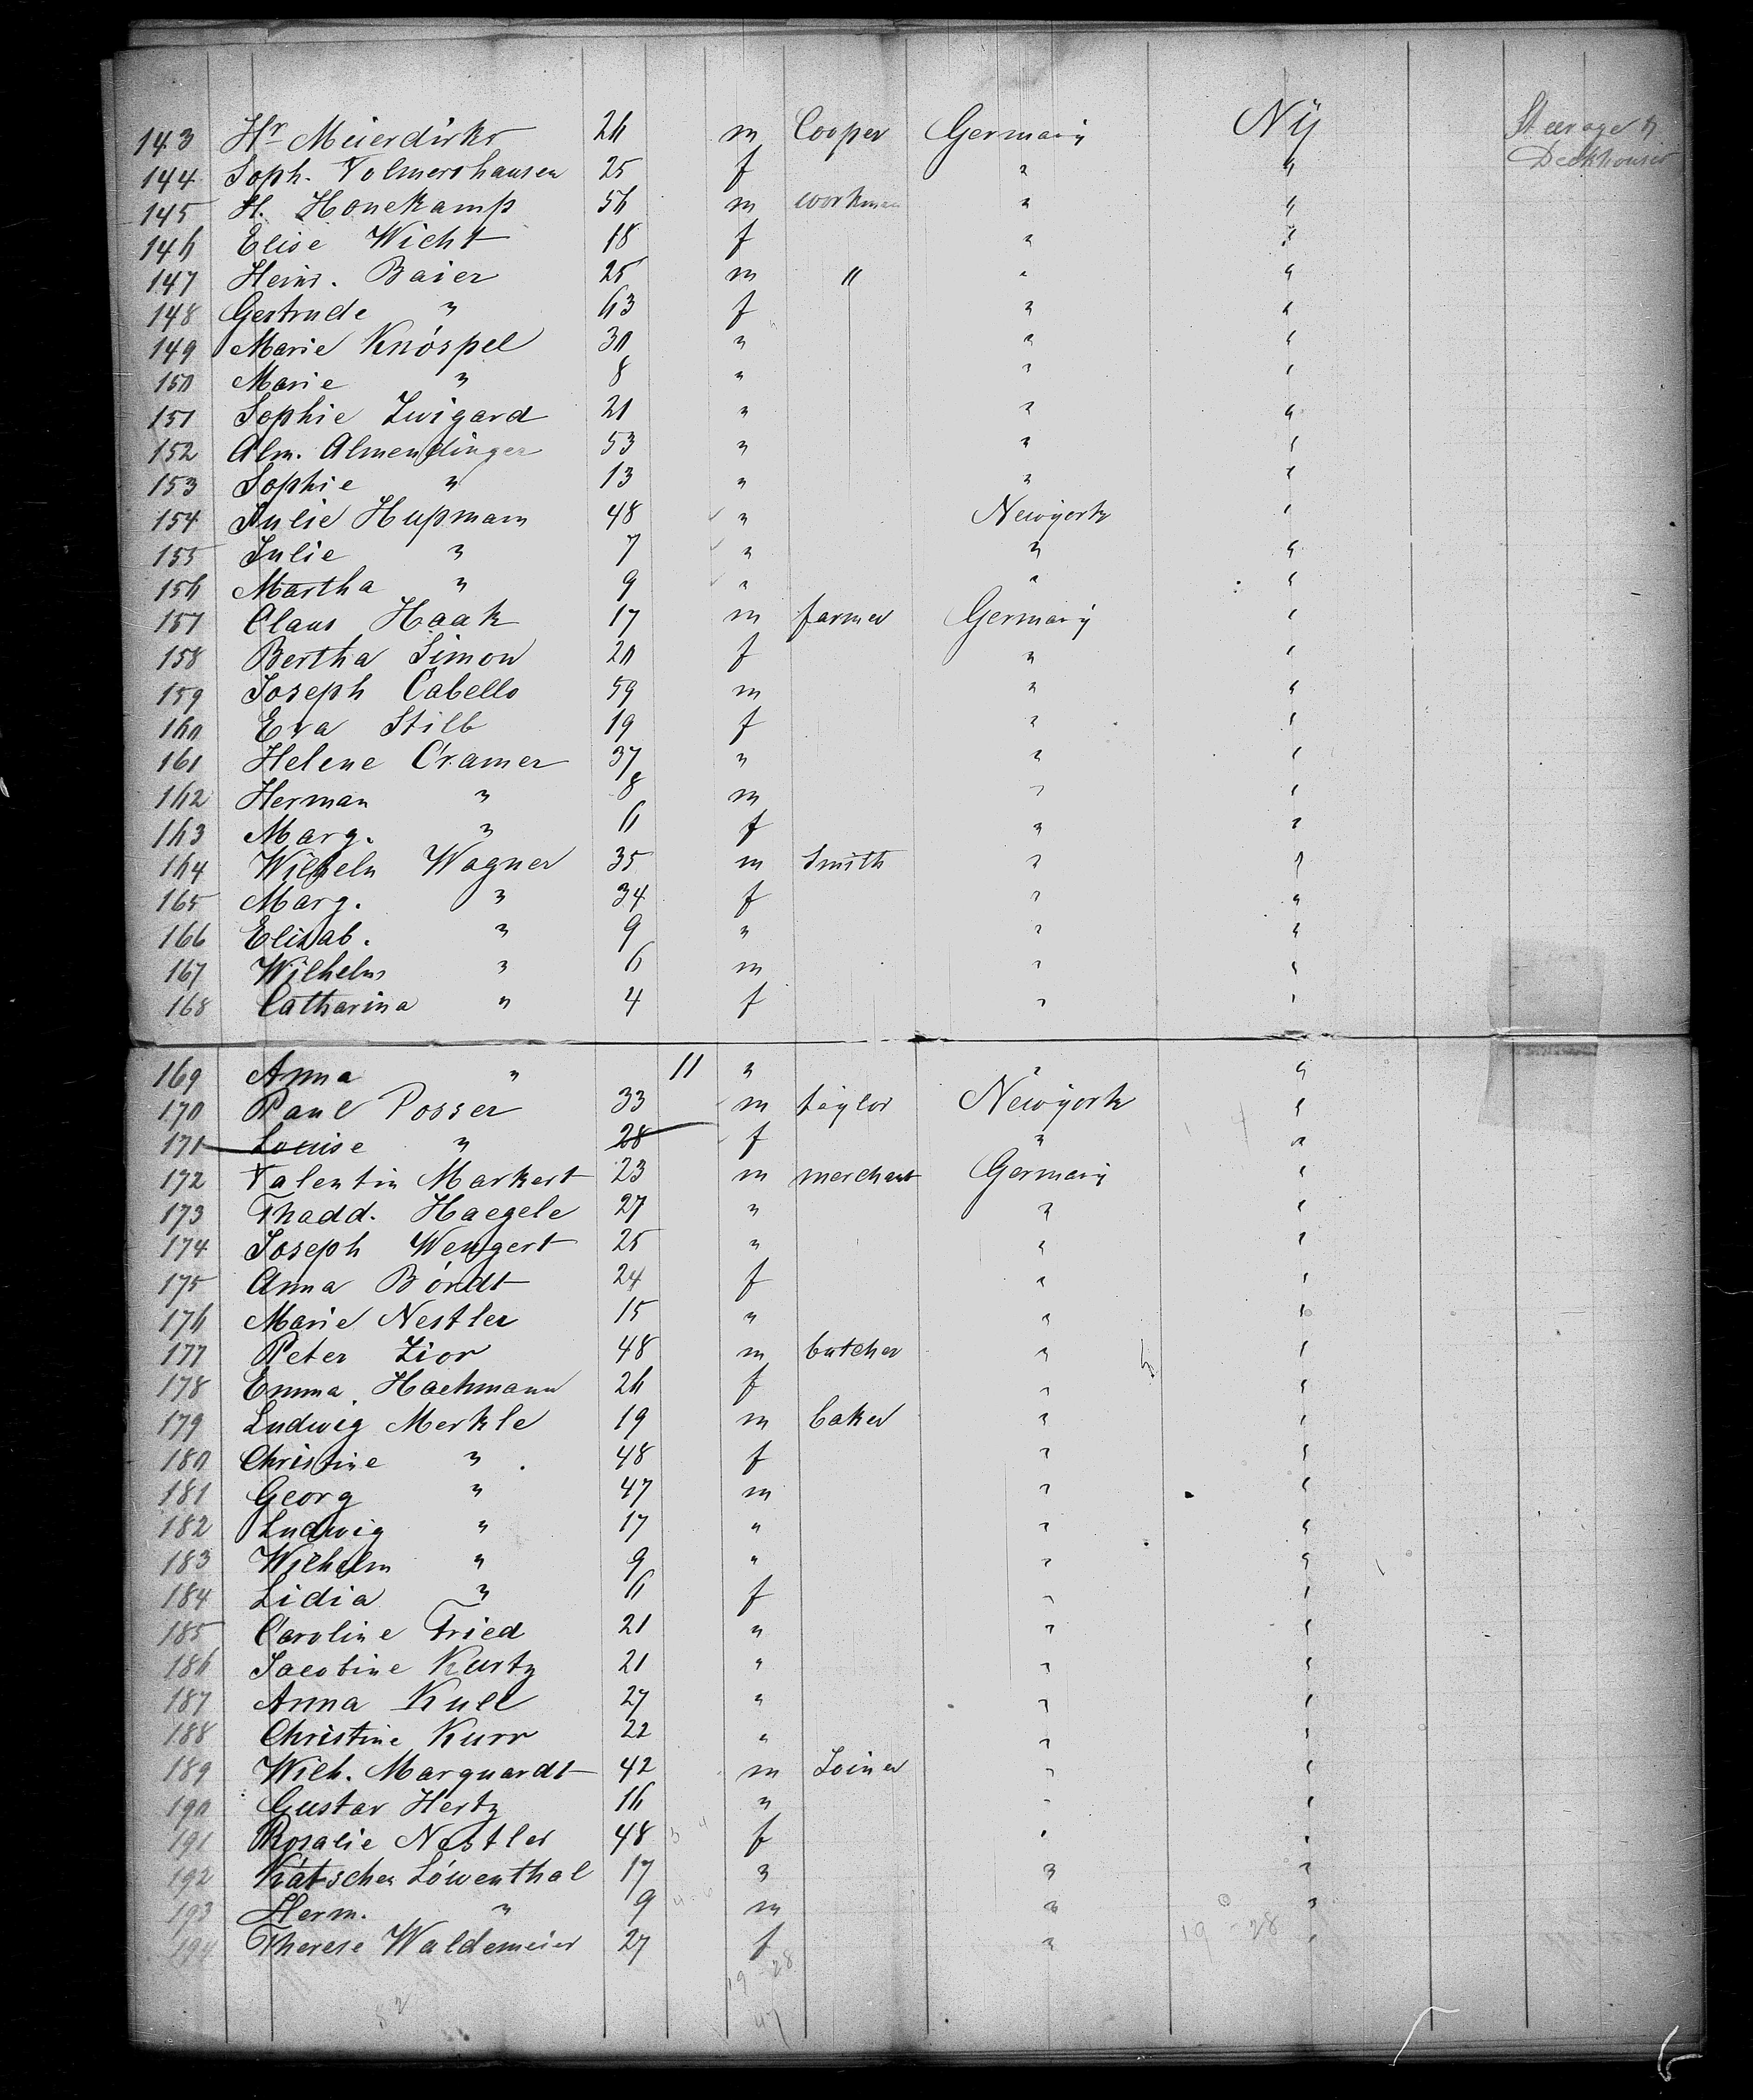 143 Hr Meierdirks 26 m Cooper Germany NY Steerage &
144 Soph. Volmershausen 25 f " " Deckhouses
145 H. Honekamp 56 m workman " "
146 Elise Wicht 18 f " "
147 Heinr. Baier 25 m " " "
148 Gertrude " 63 f " "
149 Marie Knóspel 30 " " "
150 Marie " 8 " " "
151 Sophie Zwigard 21 " " "
152 Alm. Almendinger 53 " " "
153 Sophie " 13 " " "
154 Julie Hupmann 48 " Newyork "
155 Julie " 7 " " "
156 Martha " 9 " " "
157 Claus Haak 17 m farmer Germany "
158 Bertha Simon 20 f " "
159 Joseph Cabello 59 m " "
160 Eva Stilb 19 f " "
161 Helene Cramer 37 " " "
162 Herman " 8 m " "
163 Marg. " 6 f " "
164 Wilheln Wagner 35 m Smith " "
165 Marg. " 34 f " "
166 Elisab. " 9 " " "
167 Wilhelm " 6 m " "
168 Catharina " 4 f " "
169 Anna " 11 " " "
170 Paul Posser 33 m taylor Newyork "
171 Louise " 28 f " "
172 Valentin Markert 23 m merchant Germany "
173 Thadd. Haegele 27 " " "
174 Joseph Wengert 25 " " "
175 Anna Bórdt 24 f " "
176 Marie Nestler 15 " " "
177 Peter Zior 48 m butcher " "
178 Emma Hachmann 26 f " "
179 Ludwig Merkle 19 m baker " "
180 Christine " 48 f " "
181 Georg " 47 m " "
182 Ludwig " 17 " " "
183 Wilhelm " 9 " " "
184 Lidia " 6 f " "
185 Caroline Fried 21 " " "
186 Jacobine Kurtz 21 " " "
187 Anna Kull 27 " " "
188 Christine Kurr 22 " " "
189 Wilh. Marquardt 42 m Joiner " "
190 Gustav Hertz 16 " " "
191 Rosalie Nestler 48 f " "
192 Kátschen Lówenthal 17 " " "
193 Herm. " 9 m " "
194 Therese Waldemeier 27 f " "
19-28
19-28
82
47